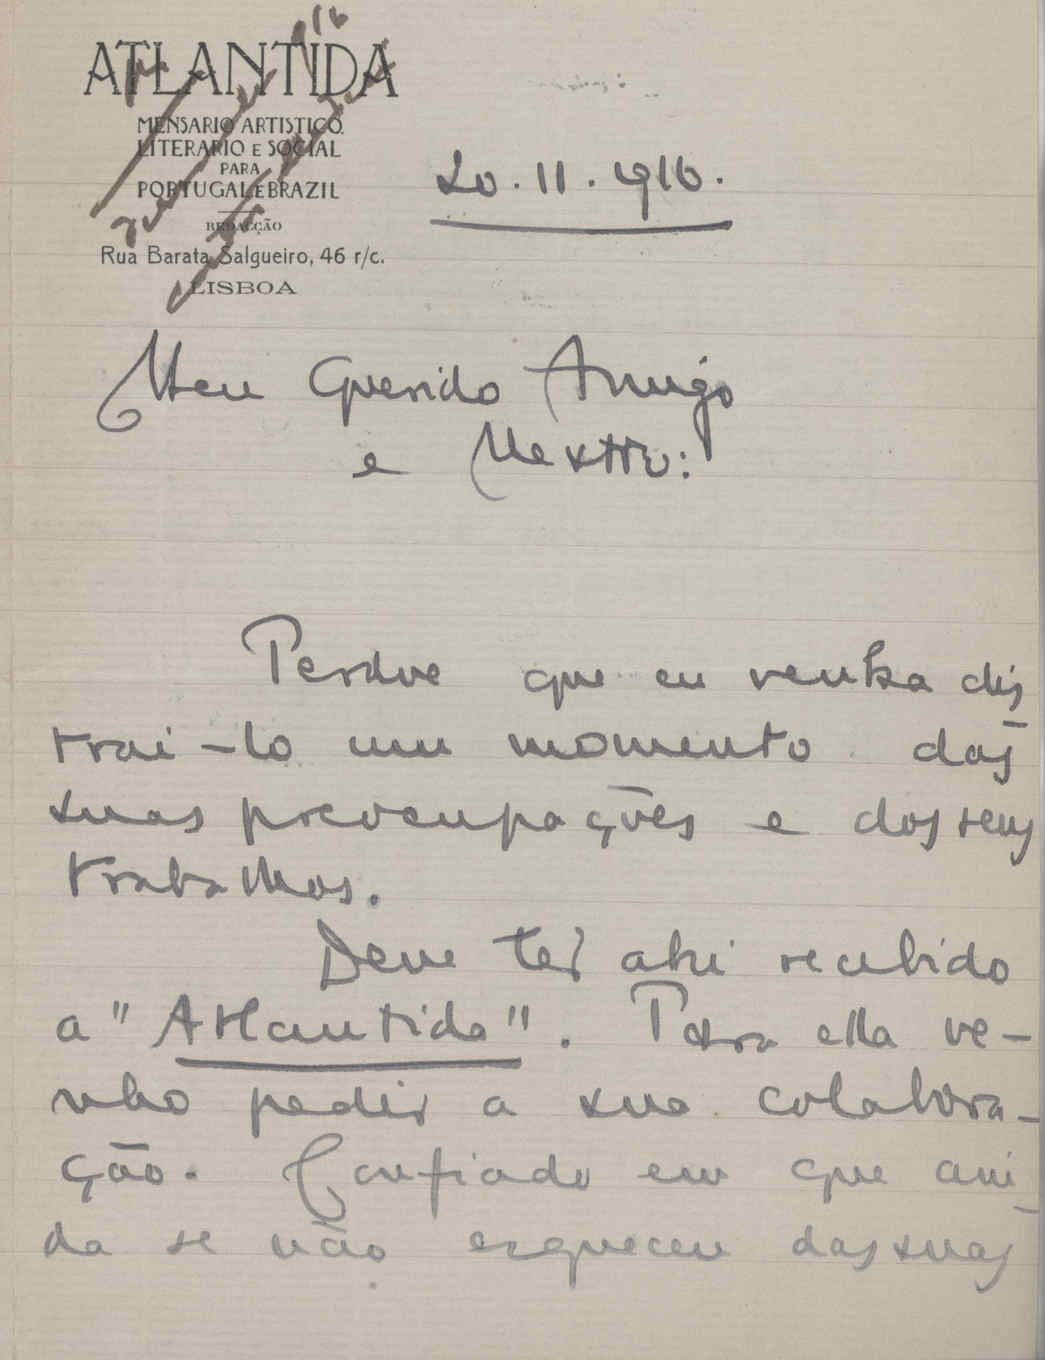 ATLANTIDA
MENSARIO ARTISTICO
LITERARIO E SOCIAL
PARA
PORTUGAL E BRAZIL
REDACÇÃO
Rua Barata Salgueiro, 46 r/c.
LISBOA
20.11.1916.
Meu Querido Amigo
e Mestre:
Perdoe que eu venha dis
trai-lo um momento das
suas preocupações e dos seus
trabalhos.
Deve ter ahi recebido
a "Atlantida". Para ella ve-
nho pedir a sua colabora-
ção. Confiado em que ain
da se não esqueceu das suas